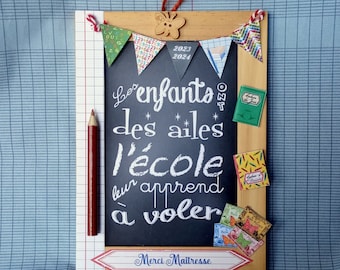 2023
2024
Les enfants ONT
des ailes
l'école
leur apprend
à voler
Merci Maîtresse.